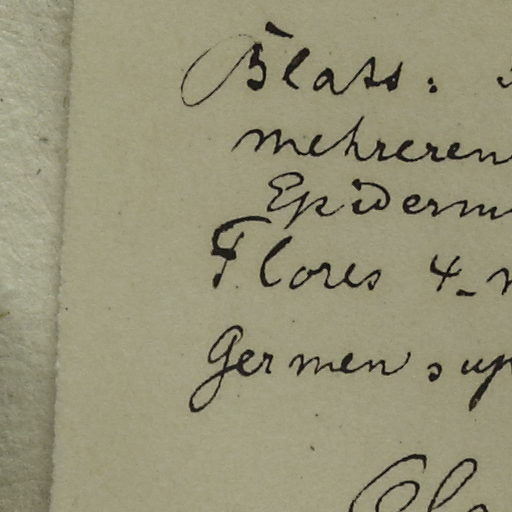 Blatt:
mehreren
Epiderm
Flores 4-
Germen sup
Cl